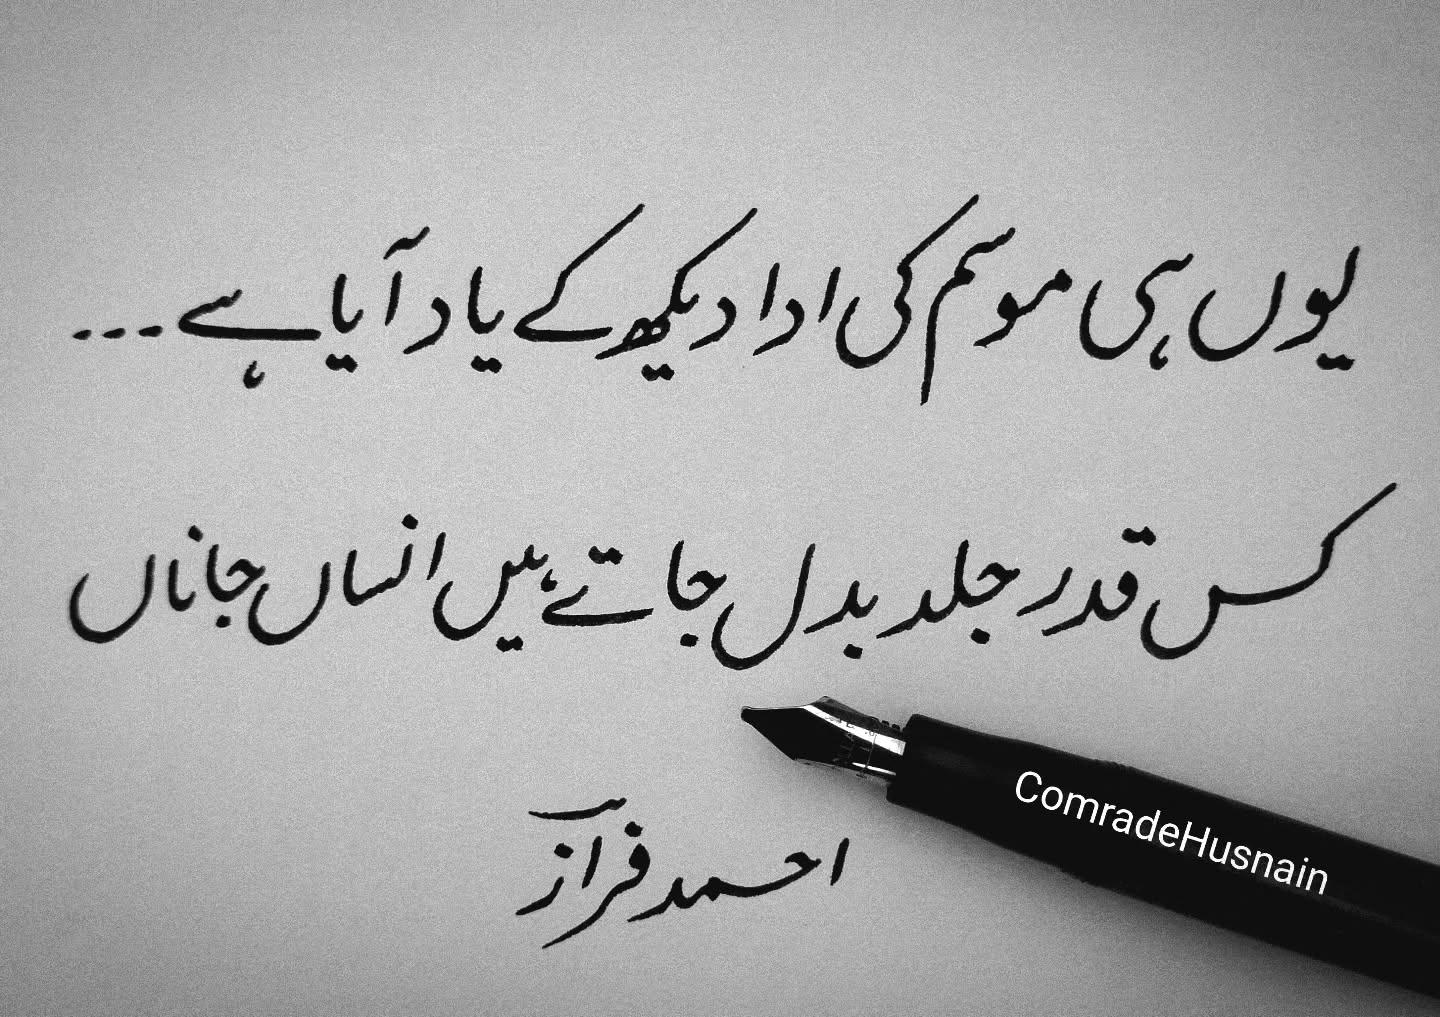 یوں ہی موسم کی ادا دیکھ کے یاد آیا ہے ...
کس قدر جلد بدل جاتے ہیں انساں جاناں
احمد فراز
ComradeHusnain